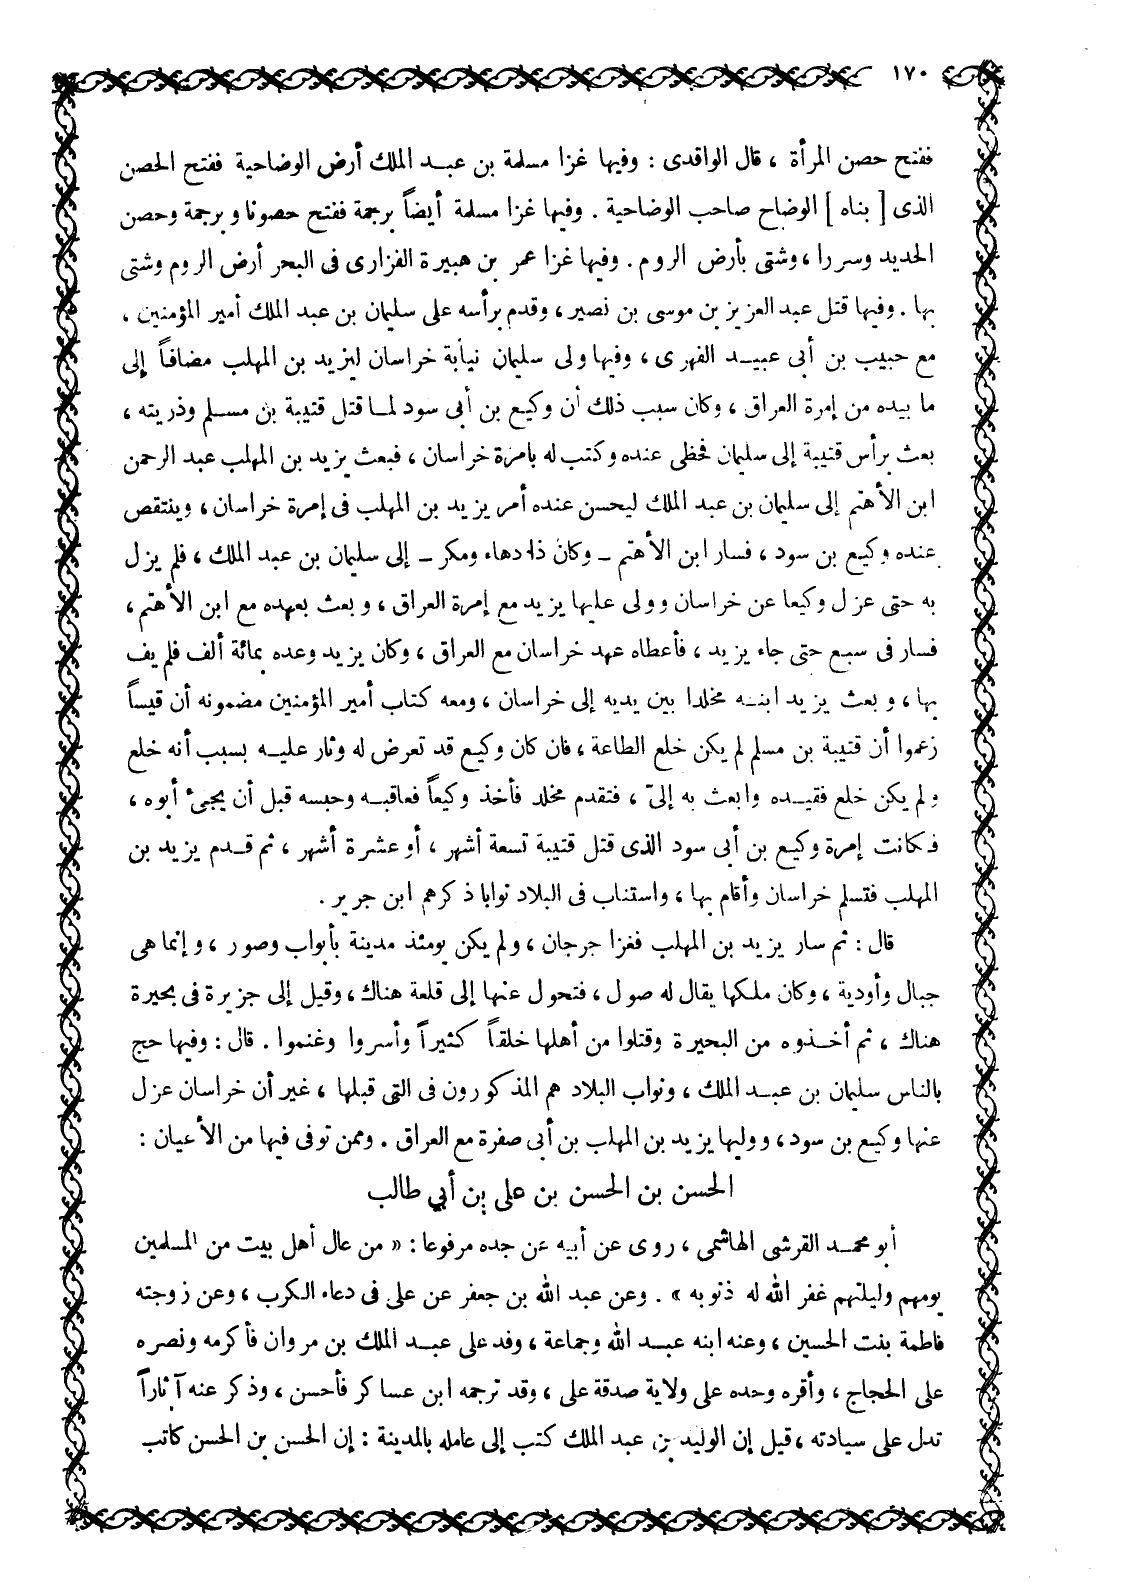 ١٧٠
ففتح حصن المرأة ، قال الواقدى : وفيها غزا مسلمة بن عبد الملك أرض الوضاحية ففتح الحصن
الذى [ بناه ] الوضاح صاحب الوضاحية . وفيها غزا مسلمة أيضاً برجمة ففتح حصونا وبرجمة وحصن
الحديد وسررا ، وشتى بأرض الروم . وفيها غزا عمر بن هبيرة الفزارى فى البحر أرض الروم وشتى
بها . وفيها قتل عبد العزيز بن موسى بن نصير ، وقدم برأسه على سليمان بن عبد الملك أمير المؤمنين .
مع حبيب بن أبى عبيد الفهرى ، وفيها ولى سليمان نيابة خراسان ليزيد بن المهلب مضافاً إلى
ما بيده من إمرة العراق ، وكان سبب ذلك أن وكيع بن أبى سود لما قتل قتيبة بن مسلم وذريته ،
بعث برأس قتيبة إلى سليمان فحظى عنده وكتب له بامرة خراسان ، فبعث يزيد بن المهلب عبد الرحمن
ابن الأهتم إلى سليمان بن عبد الملك ليحسن عنده أمر يزيد بن المهلب فى إمرة خراسان ، وينتقص
عنده وكيع بن سود ، فسار ابن الأهتم – وكان ذا دهاء ومكر – إلى سليمان بن عبد الملك ، فلم يزل
به حتى عزل وكيعا عن خراسان وولى عليها يزيد مع إمرة العراق ، وبعث بعهده مع ابن الأهتم ،
فسار فى سبع حتى جاء يزيد ، فأعطاه عهد خراسان مع العراق ، وكان يزيد وعده بمائة ألف فلم يف
بها ، وبعث يزيد ابنه مخلدا بين يديه إلى خراسان ، ومعه كتاب أمير المؤمنين مضمونه أن قيساً
زعموا أن قتيبة بن مسلم لم يكن خلع الطاعة ، فان كان وكيع قد تعرض له وثار عليه بسبب أنه خلع
ولم يكن خلع فقيده وابعث به إلىّ ، فتقدم مخلد فأخذ وكيعاً فعاقبه وحبسه قبل أن يجىء أبوه ،
فكانت إمرة وكيع بن أبى سود الذى قتل قتيبة تسعة أشهر ، أو عشرة أشهر ، ثم قدم يزيد بن
المهلب فتسلم خراسان وأقام بها ، واستناب فى البلاد نوابا ذكرهم ابن جرير .
قال : ثم سار يزيد بن المهلب فغزا جرجان ، ولم يكن يومئذ مدينة بأبواب وصور ، وإنما هى
جبال وأودية ، وكان ملكها يقال له صول ، فتحول عنها إلى قلعة هناك ، وقيل إلى جزيرة فى بحيرة
هناك ، ثم أخذوه من البحيرة وقتلوا من أهلها خلقاً كثيراً وأسروا وغنموا . قال : وفيها حج
بالناس سليمان بن عبد الملك ، ونواب البلاد هم المذكورون فى التى قبلها ، غير أن خراسان عزل
عنها وكيع بن سود ، ووليها يزيد بن المهلب بن أبى صفرة مع العراق . وممن توفى فيها من الأعيان :
الحسن بن الحسن بن على بن أبي طالب
أبو محمد القرشى الهاشمى ، روى عن أبيه عن جده مرفوعا : « من عال أهل بيت من المسلمين
يومهم وليلتهم غفر الله له ذنوبه » . وعن عبد الله بن جعفر عن على فى دعاء الكرب ، وعن زوجته
فاطمة بنت الحسين ، وعنه ابنه عبد الله وجماعة ، وفد على عبد الملك بن مروان فأكرمه ونصره
على الحجاج ، وأقره وحده على ولاية صدقة على ، وقد ترجمه ابن عساكر فأحسن ، وذكر عنه آثاراً
تدل على سيادته ، قيل إن الوليد بن عبد الملك كتب إلى عامله بالمدينة : إن الحسن بن الحسن كاتب